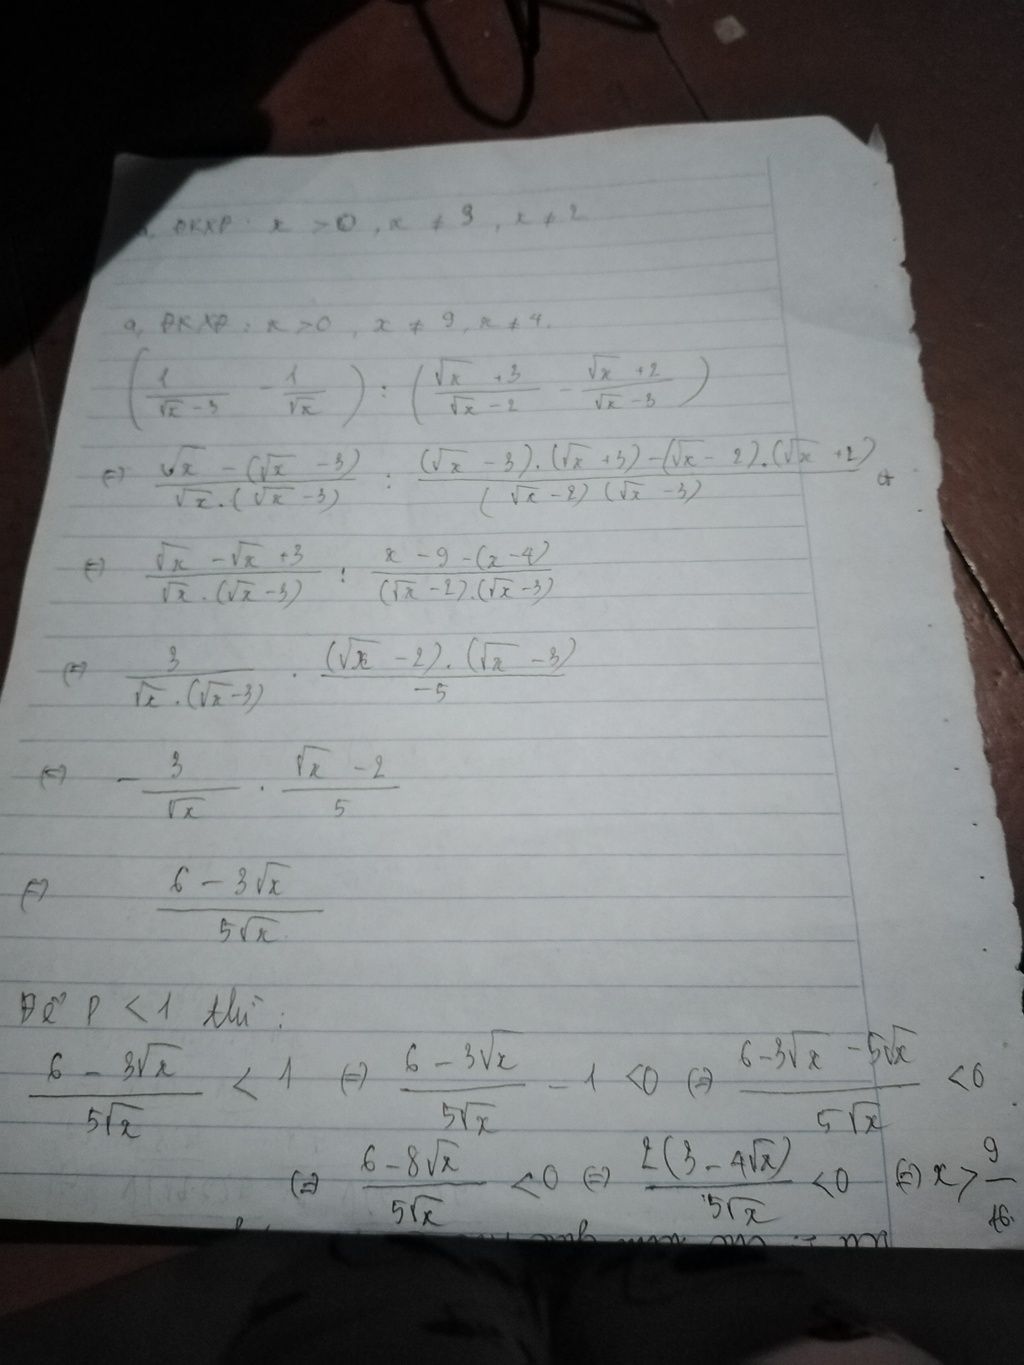 ĐKXĐ: x > 0, x ≠ 9, x ≠ 2
a, ĐKXĐ: x > 0, x ≠ 9, x ≠ 4.
(1/(√x - 3) - 1/√x) : ((√x + 3)/(√x - 2) - (√x + 2)/(√x - 3))
(=) (√x - (√x - 3))/(√x.(√x - 3)) : ((√x - 3).(√x + 3) - (√x - 2).(√x + 2))/((√x - 2)(√x - 3))
(=) (√x - √x + 3)/(√x.(√x - 3)) : (x - 9 - (x - 4))/((√x - 2).(√x - 3))
(=) 3/(√x.(√x - 3)) . ((√x - 2).(√x - 3))/(-5)
(=) - 3/√x . (√x - 2)/5
(=) (6 - 3√x)/(5√x)
Để P < 1 thì:
(6 - 3√x)/(5√x) < 1 (=) (6 - 3√x)/(5√x) - 1 < 0 (=) (6 - 3√x - 5√x)/(5√x) < 0
(=) (6 - 8√x)/(5√x) < 0 (=) (2(3 - 4√x))/(5√x) < 0 (=) x > 9/16.